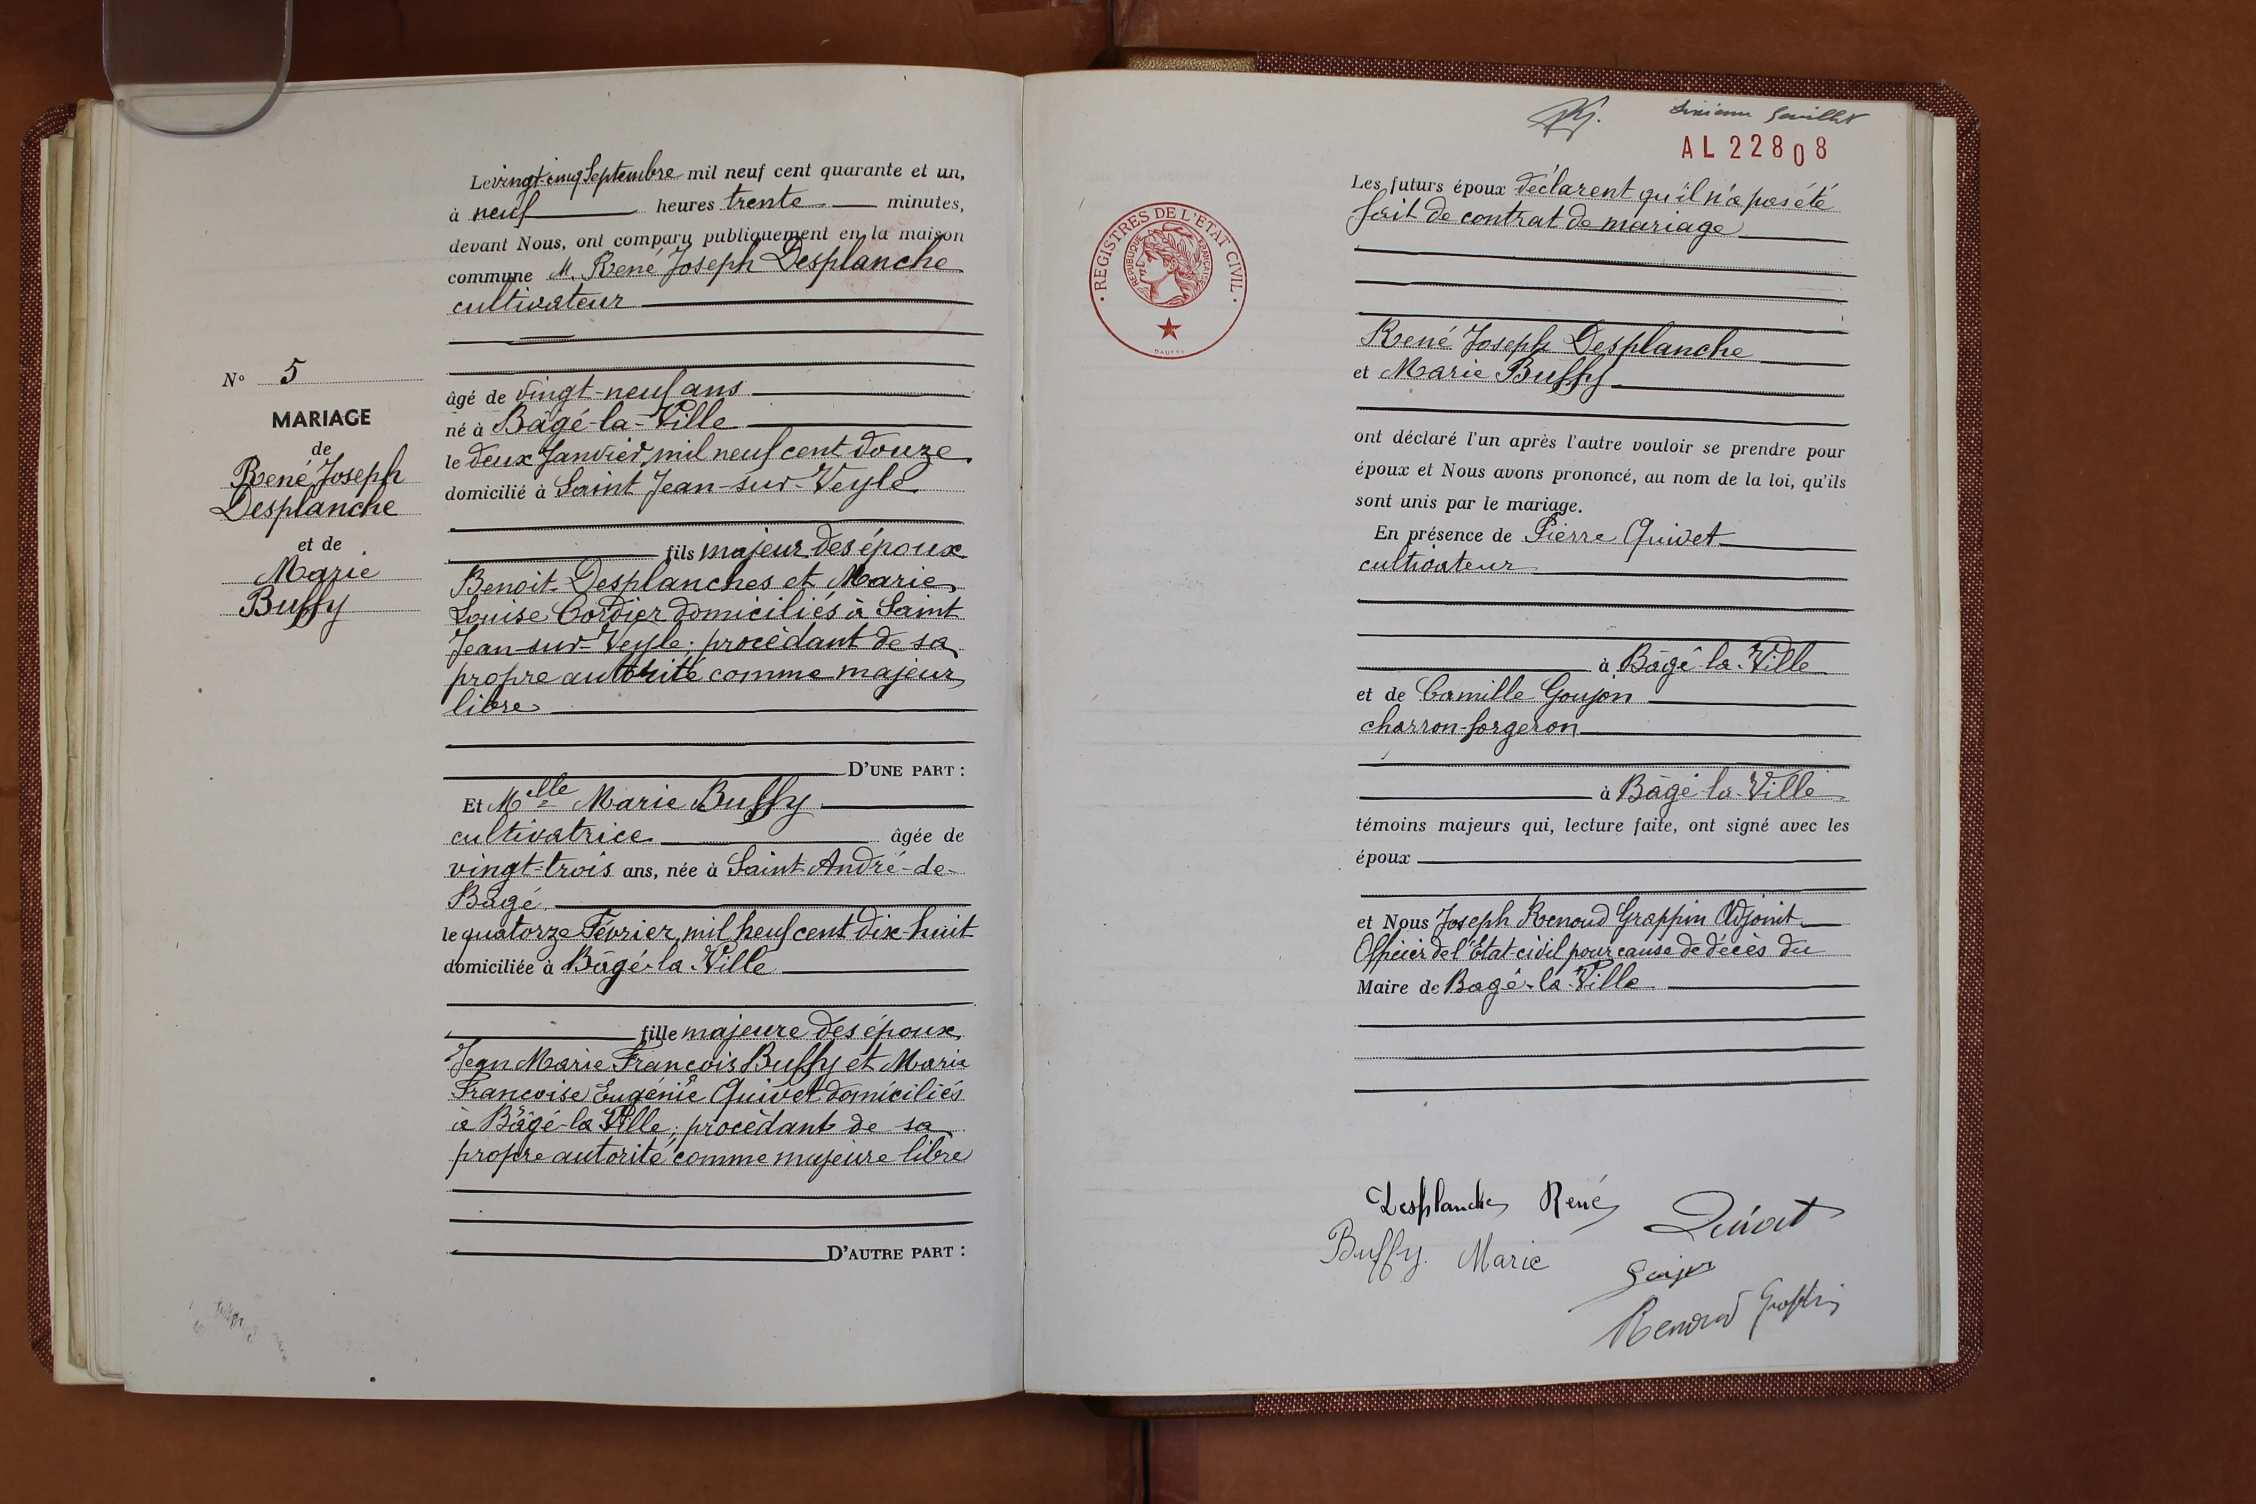 N° 5
MARIAGE
de
René Joseph
Desplanche
et de
Marie
Buffy
Le vingt-cinq Septembre mil neuf cent quarante et un,
à neuf heures trente minutes,
devant Nous, ont comparu publiquement en la maison
commune M. René Joseph Desplanche
cultivateur
âgé de vingt-neuf ans
né à Bâgé-la-Ville
le deux Janvier mil neuf cent douze
domicilié à Saint Jean-sur-Veyle
fils majeur des époux
Benoit Desplanches et Marie
Louise Cordier domiciliés à Saint
Jean-sur-Veyle; procédant de sa
propre autorité comme majeur
libre
D'UNE PART :
Et Melle Marie Buffy
cultivatrice âgée de
vingt-trois ans, née à Saint-André-de-
Bâgé
le quatorze Février mil neuf cent dix-huit
domiciliée à Bâgé-la-Ville
fille majeure des époux
Jean Marie François Buffy et Marie
Françoise Eugénie Quivet domiciliés
à Bâgé-la-Ville; procédant de sa
propre autorité comme majeure libre
D'AUTRE PART :
AL 22808
REGISTRES DE L'ETAT CIVIL
REPUBLIQUE FRANÇAISE
Les futurs époux déclarent qu'il n'a pas été
fait de contrat de mariage
René Joseph Desplanche
et Marie Buffy
ont déclaré l'un après l'autre vouloir se prendre pour
époux et Nous avons prononcé, au nom de la loi, qu'ils
sont unis par le mariage.
En présence de Pierre Quivet
cultivateur
à Bâgé-la-Ville
et de Camille Goujon
charron-forgeron
à Bâgé-la-Ville
témoins majeurs qui, lecture faite, ont signé avec les
époux
et Nous Joseph Renoud Grappin Adjoint
Officier de l'Etat-civil pour cause de décès du
Maire de Bâgé-la-Ville
Desplanche René
Quivet
Buffy Marie
Goujon
Renoud Grappin